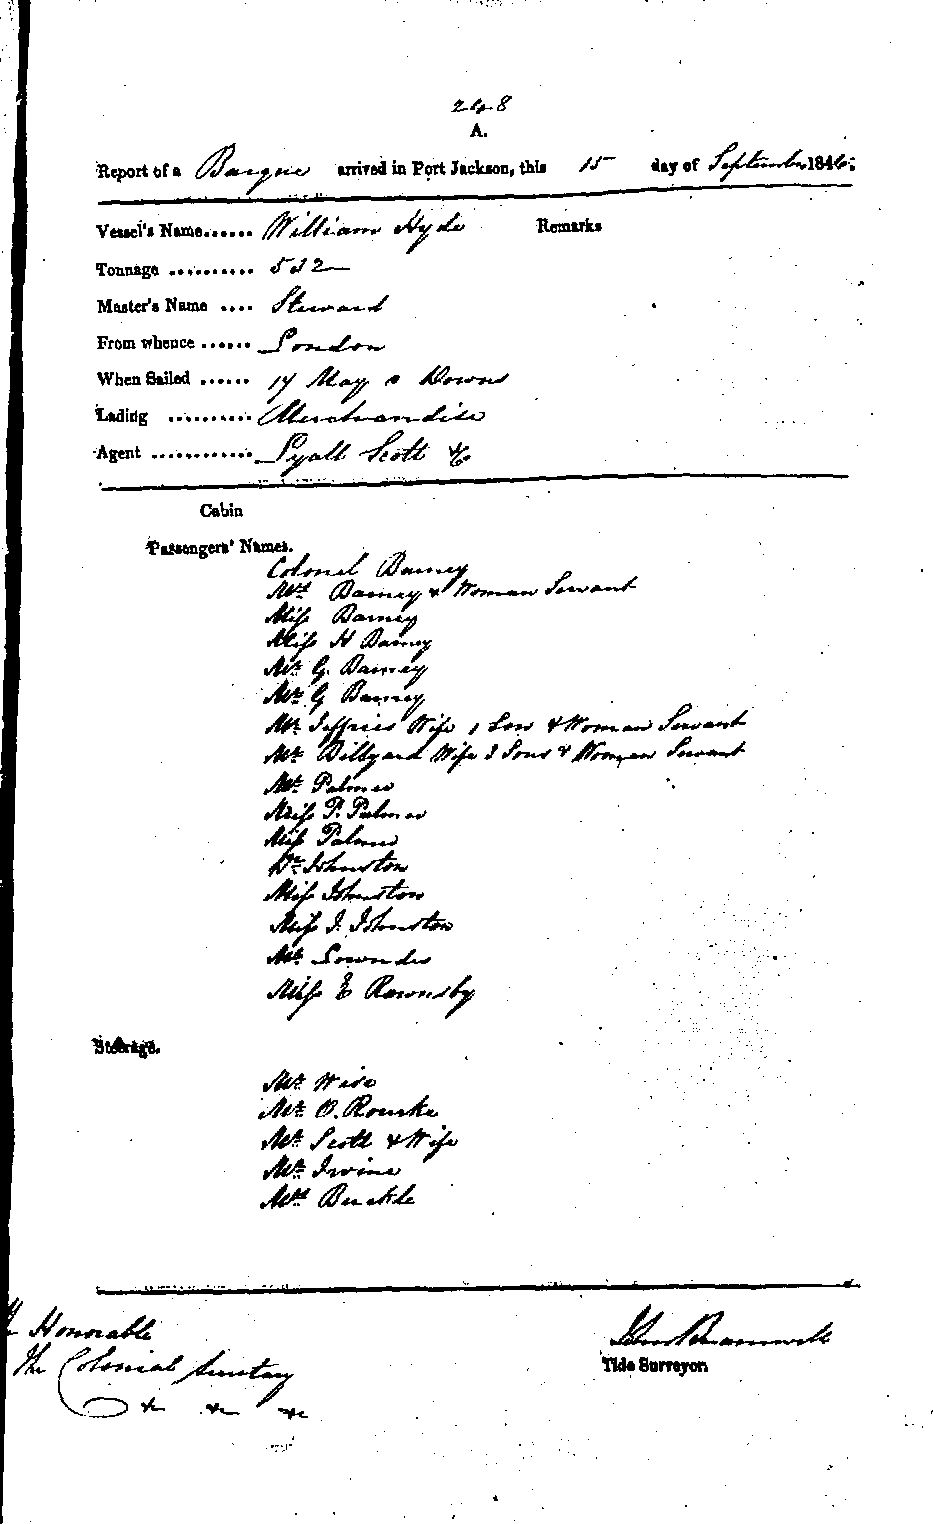 248
A.
Report of a Barque arrived in Port Jackson, this 15 day of September 1846.
Vessel's Name...... William Hyde Remarks
Tonnage .......... 532
Master's Name .... Steward
From whence ...... London
When Sailed ...... 17 May Downs
Lading .......... Merchandise
Agent ............ Lyall Scott & Co
Cabin
Passengers' Names.
Colonel Barney
Mrs Barney & Woman Servant
Miss Barney
Miss H Barney
Mr G. Barney
Mr G Barney
Mr Jeffries Wife 1 Son & Woman Servant
Mr Billyard Wife 3 Sons & Woman Servant
Mr Palmer
Miss P. Palmer
Miss Palmer
Dr Johnston
Miss Johnston
Miss J. Johnston
Mr Lowndes
Miss E Rawnsby
Steerage.
Mr Wise
Mr O. Rourke
Mr Scott & Wife
Mr Irvine
Mrs Buckle
The Honorable
The Colonial Secretary
&c &c &c
John Bramwell
Tide Surveyor